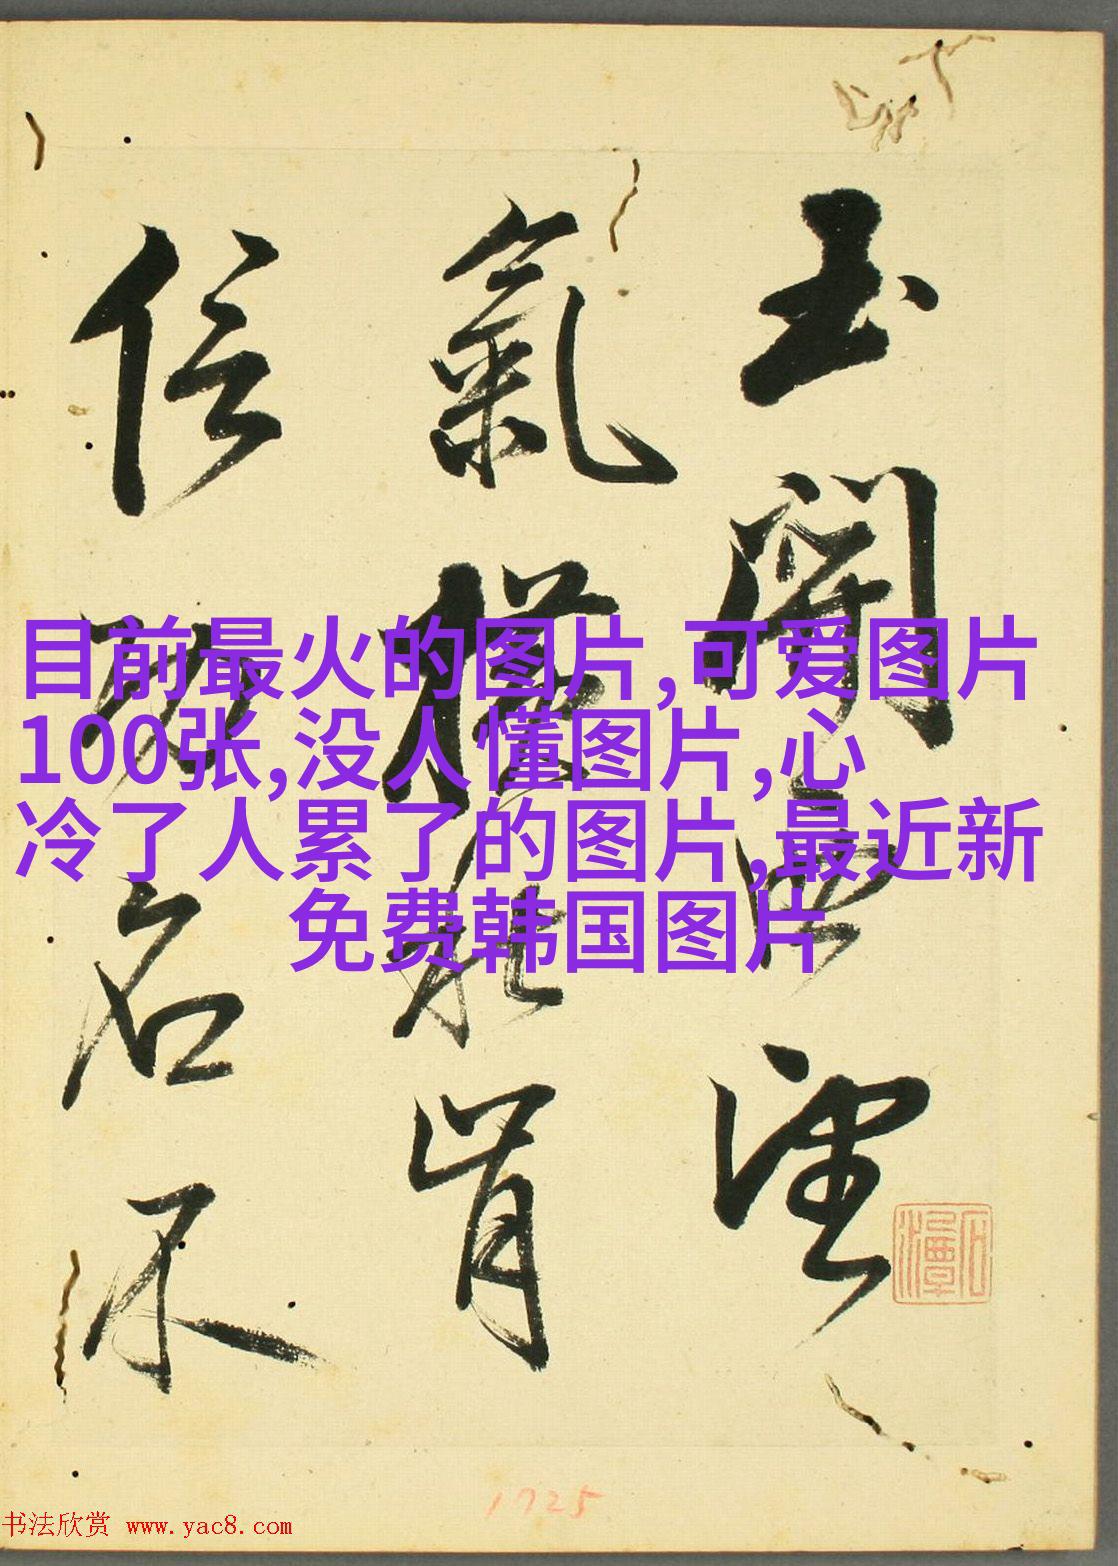 玉關西望
氣橫秋肯
信功名不
目前最火的图片,可爱图片
100张,没人懂图片,心
冷了人累了的图片,最近新
免费韩国图片
1725
书法欣赏 www.yac8.com